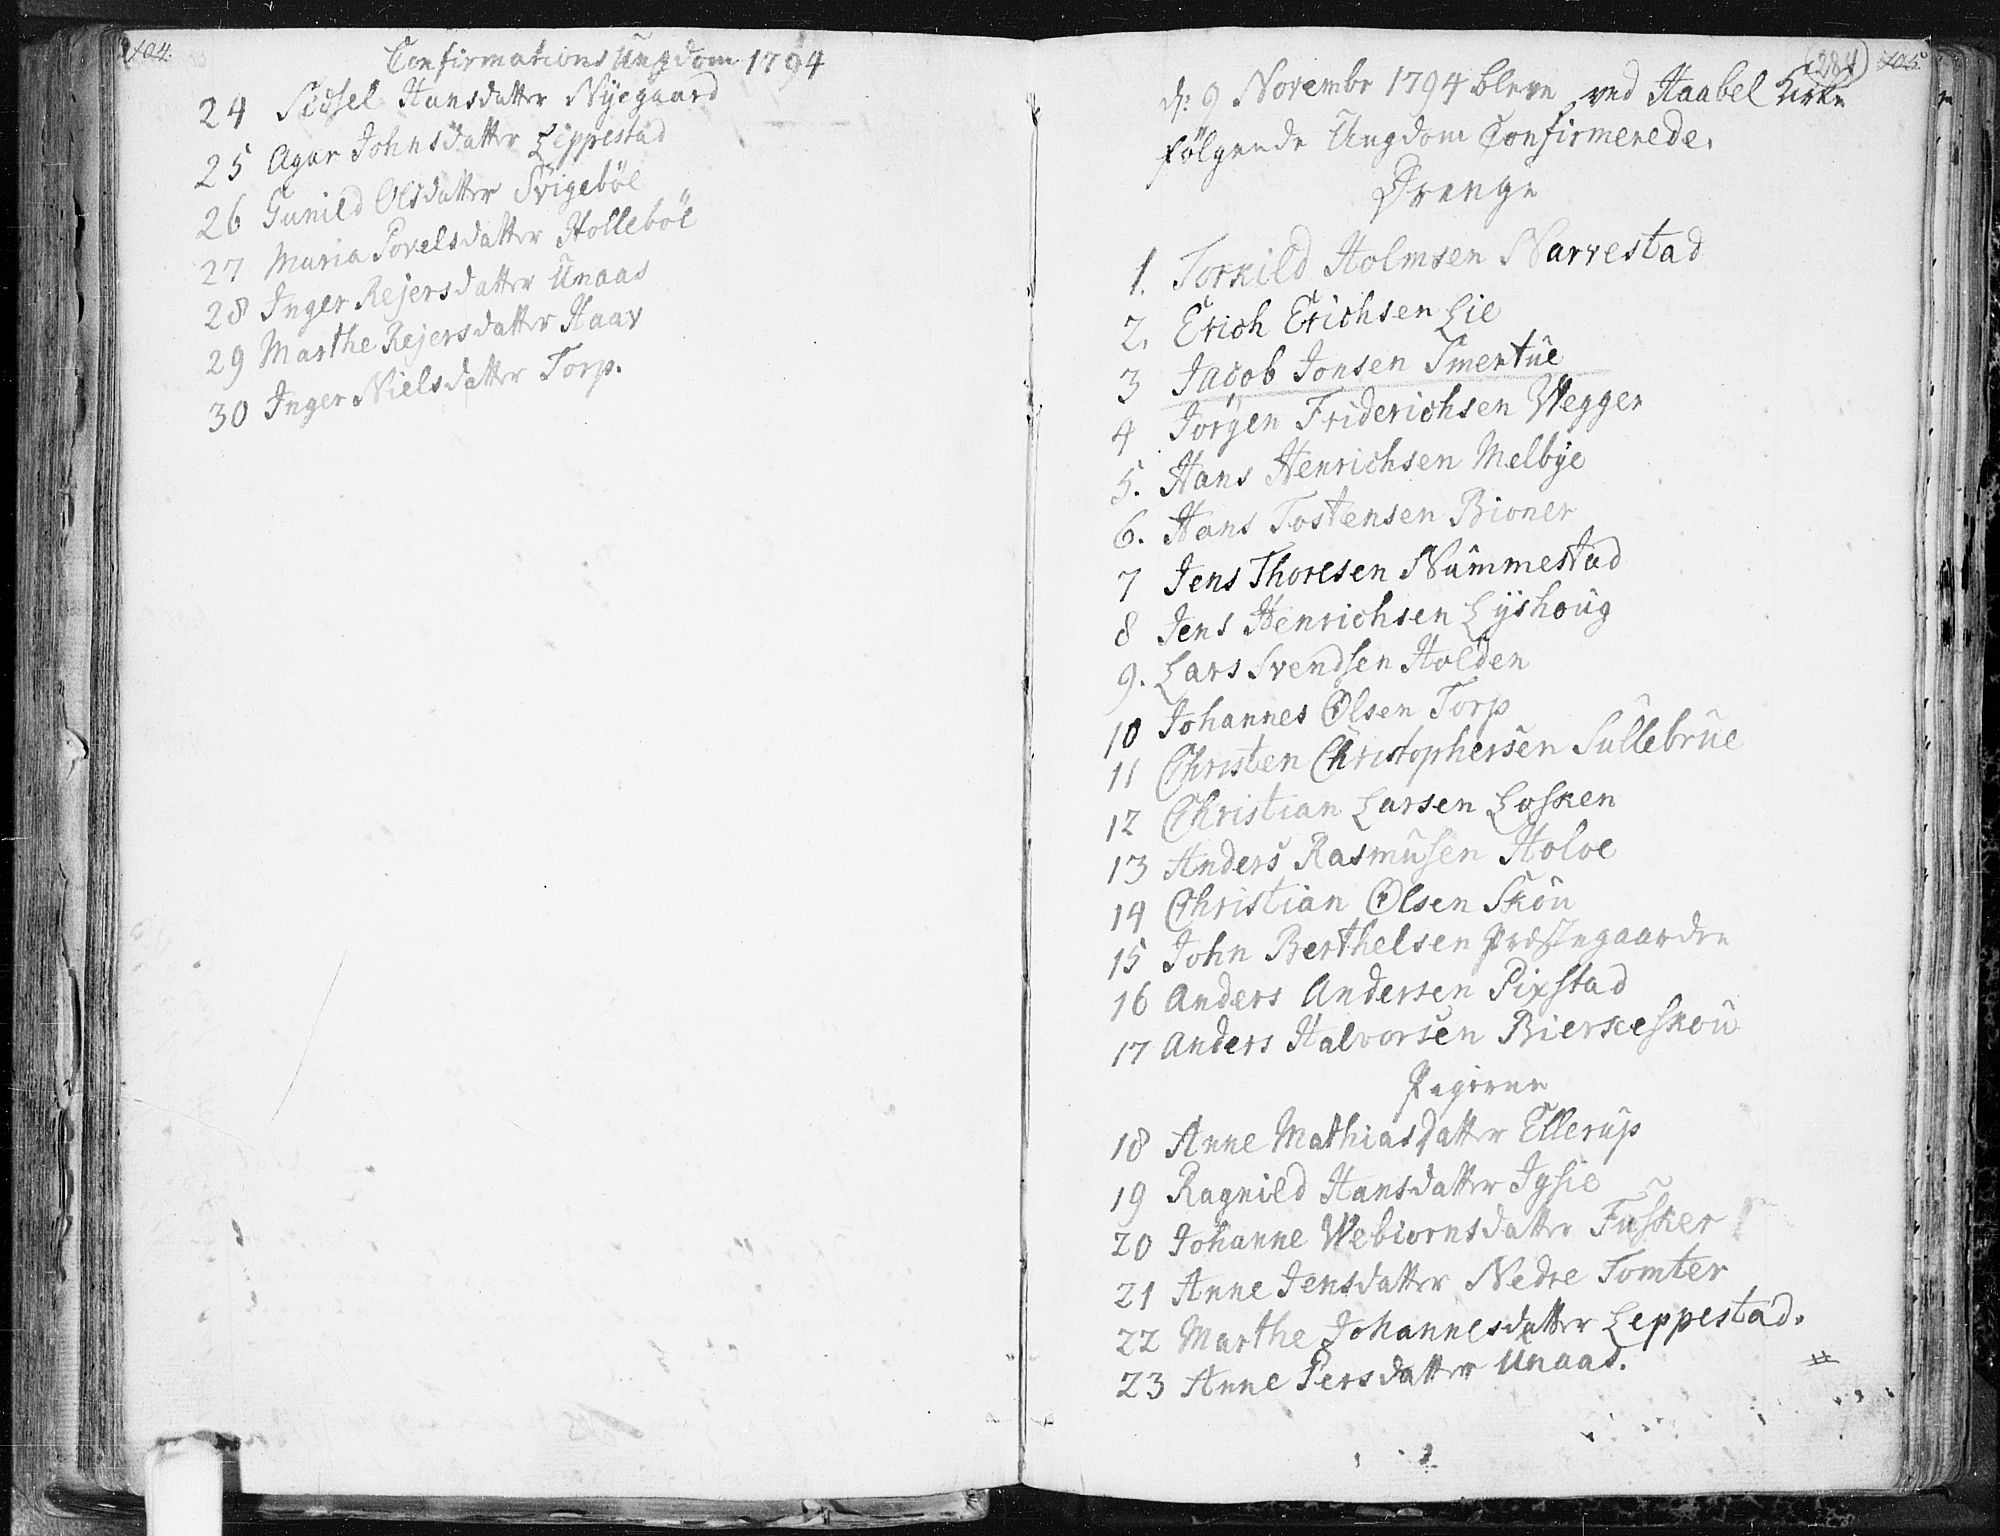 104.
Confirmations Ungdom 1794
24 Sidsel Hansdatter Nyegaard
25 Agar Johnsdatter Leppestad
26 Gunild Olsdatter Svigeböl
27 Maria Povelsdatter Holleböl
28 Inger Rejersdatter Unaas
29 Marthe Rejersdatter Haav
30 Inger Nielsdatter Torp.
284 105
d: 9 Novembr 1794 bleve ved Haabel Kirke
følgende Ungdom Confirmerede.
Drenge
1. Torkild Holmsen Narvestad
2. Erich Erichsen Lie
3 Jacob Jonsen Smertue
4 Jörgen Friderichsen Wegger
5. Hans Henrichsen Melbÿe
6. Hans Tostensen Bioner
7 Jens Thoresen Nummestad
8 Jens Henrichsen Lÿshoug
9. Lars Svendsen Holden
10 Johannes Olsen Torp
11 Christen Christophersen Sullebrue
12 Christian Larsen Losken
13 Anders Rasmusen Holoe
14 Christian Olsen Skou
15 John Berthelsen Præstegaarden
16 Anders Andersen Pixstad
17 Anders Halvorsen Bierkeskou
Pigerne
18 Anne Mathiasdatter Ellerup
19 Ragnild Hansdatter Igsie
20 Johanne Webiornsdatter Fusker
21 Anne Jensdatter Nedre Tomter
22 Marthe Johannesdatter Leppestad.
23 Anne Persdatter Unaas.